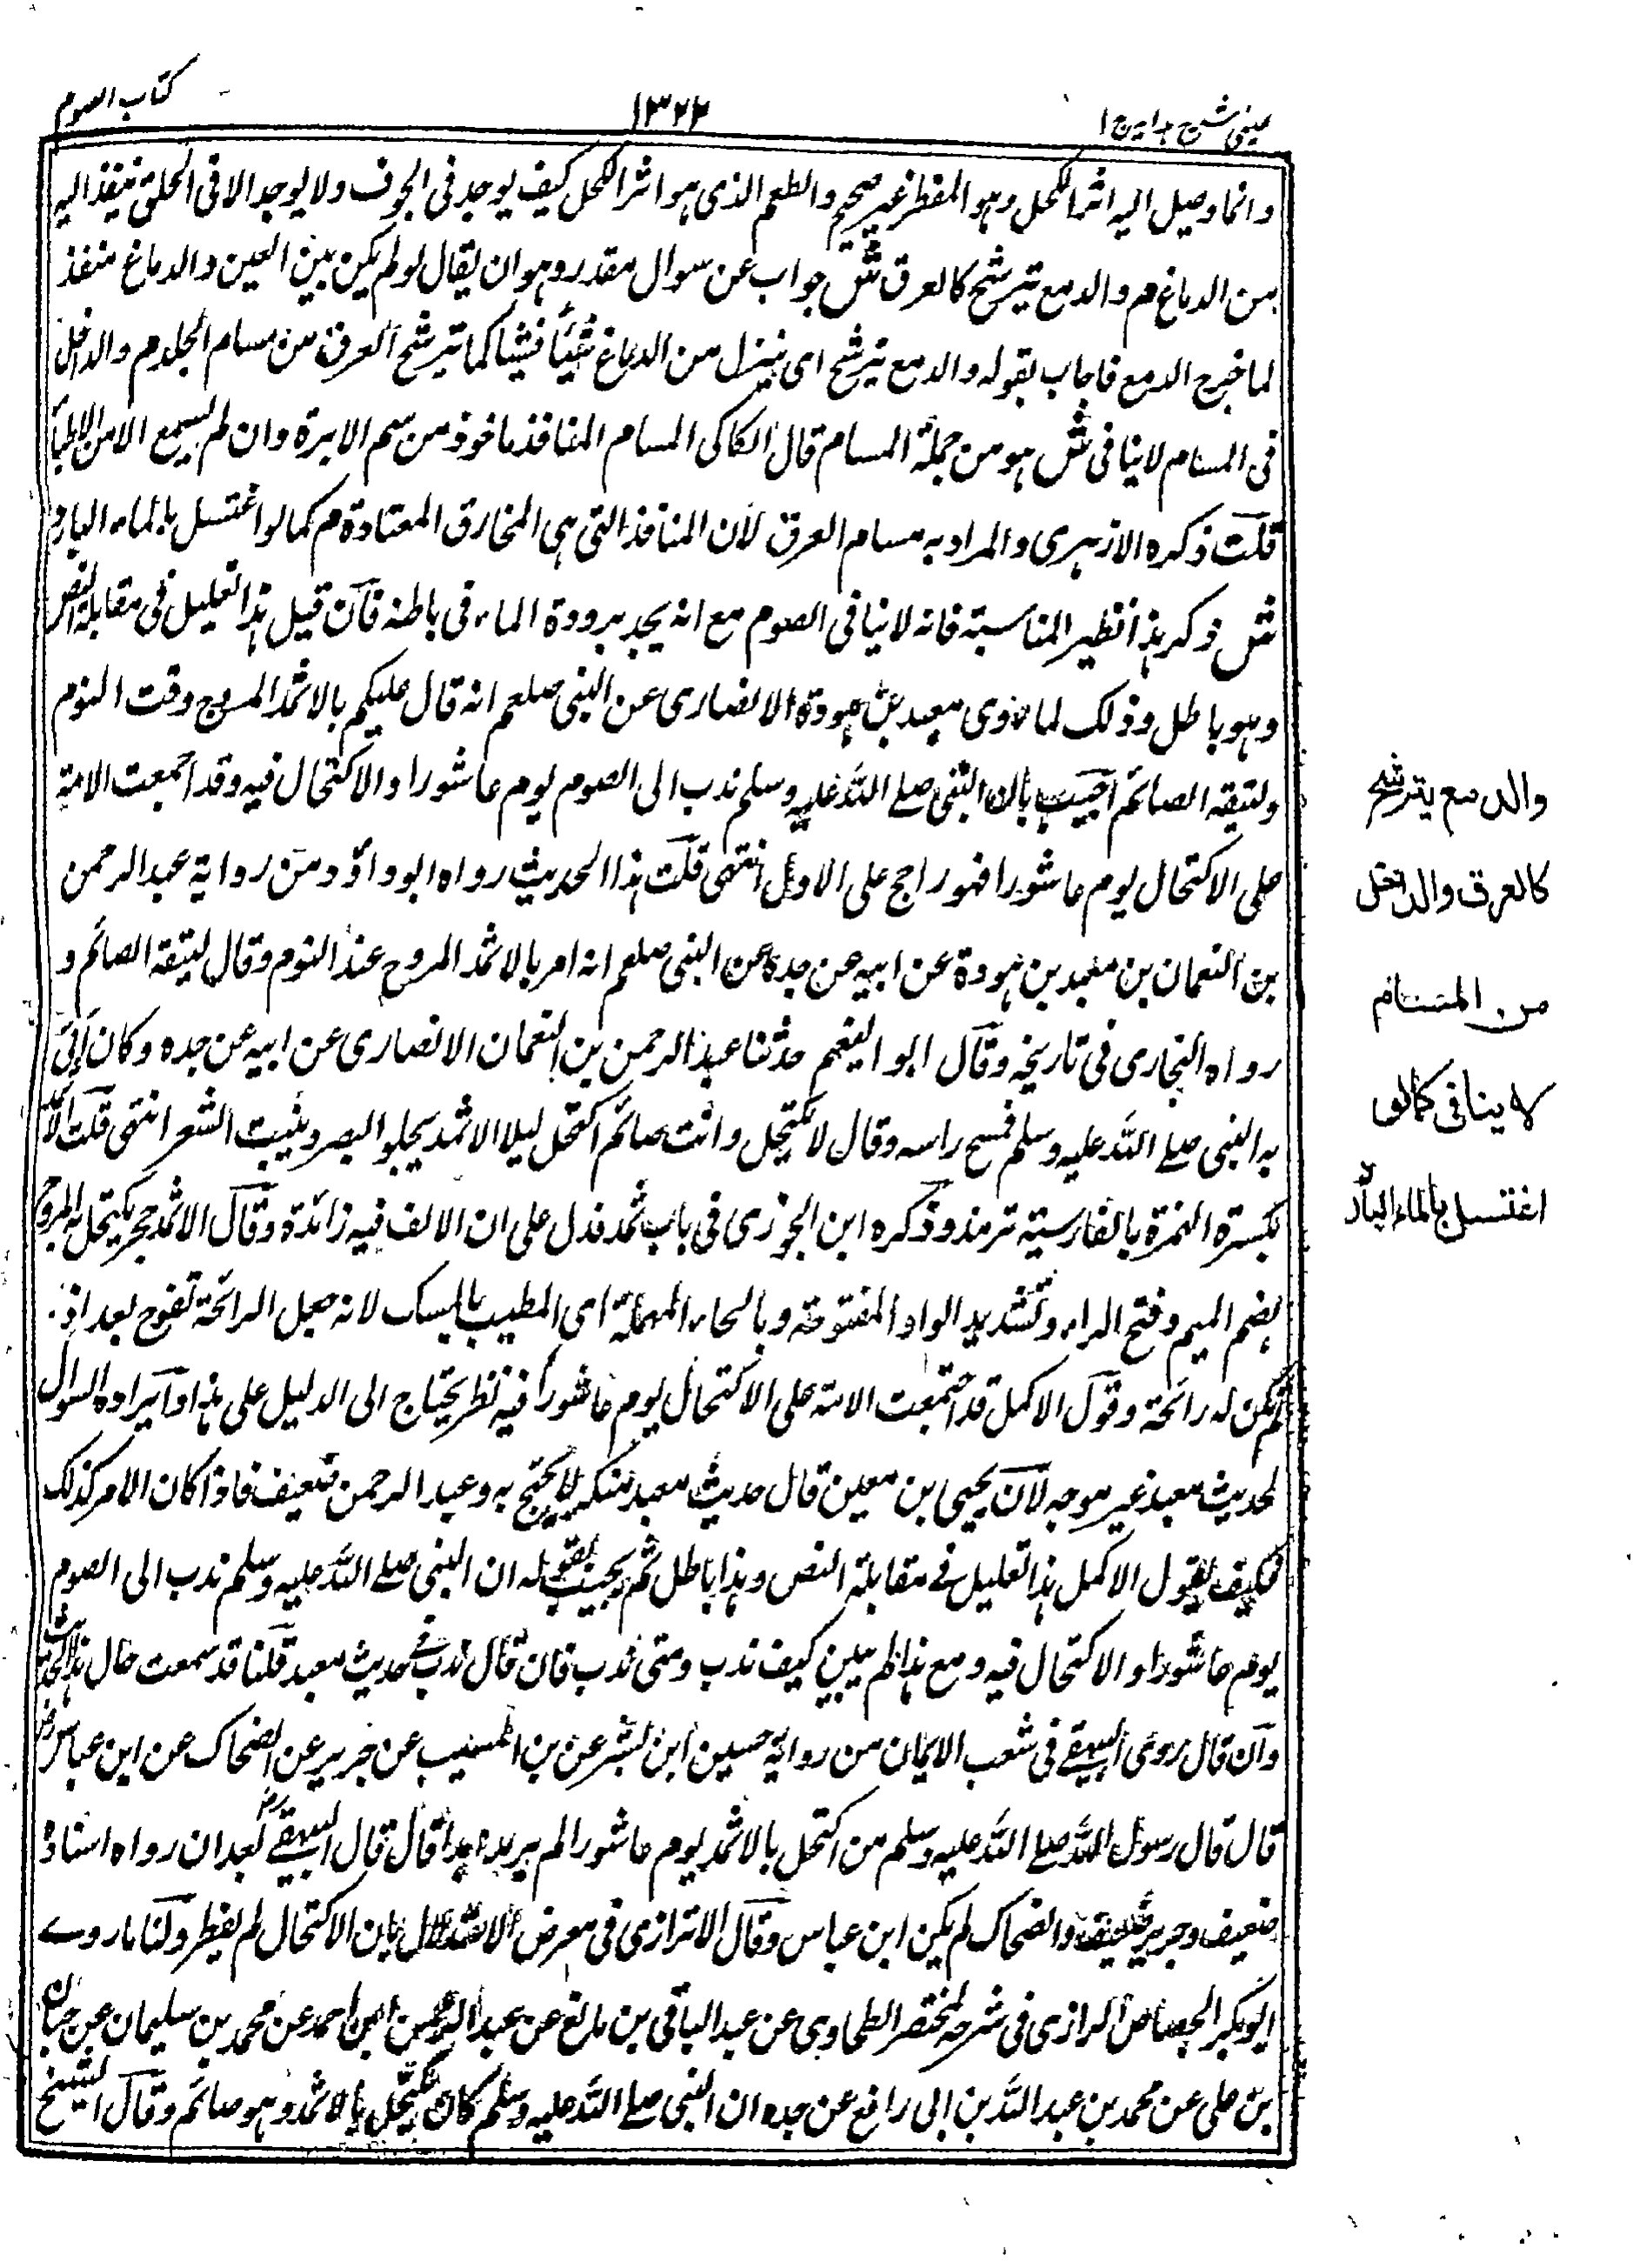 عینی شرح ہدایہ ج ۱
۱۳۲۲
کتاب الصوم
وانما وصل الیہ اثر الکحل وہو المفطر غیر صحیح والطعم الذی ہو اثر الکحل کیف یوجد فی الجوف ولا یوجد الا فی الحلق فینفذ الیہ
من الدماغ م والدمع یترشح کالعرق ش جواب عن سوال مقدر وہو ان یقال لو لم یکن بین العین والدماغ منفذ
لما خرج الدمع فاجاب بقولہ والدمع یترشح ای ینزل من الدماغ شیئا فشیئا کما یترشح العرق من مسام الجلد م والداخل
فی المسام لا ینافی ش ہو من جملۃ المسام قال الکاکی المسام المنافذ ماخوذ من سم الابرۃ وان لم یسمع الا من الاطباء
قلت ذکرہ الازہری والمراد بہ مسام العرق لان المنافذ التی ہی المخارق المعتادۃ م کما لو اغتسل بالماء البارد م
ش ذکر ہذا نظیر المناسبۃ فانہ لا ینافی الصوم مع انہ یجد برودۃ الماء فی باطنہ فان قیل ہذا تعلیل فی مقابلۃ النص
وہو باطل وذلک لما روی معبد بن ہودۃ الانصاری عن النبی صلعم انہ قال علیکم بالاثمد المروح وقت النوم
ولیتقہ الصائم اجیب بان النبی صلے اللہ علیہ وسلم ندب الی الصوم یوم عاشورا والاکتحال فیہ وقد اجمعت الامۃ
علی الاکتحال یوم عاشورا فہو راجح علی الاول انتہی قلت ہذا الحدیث رواہ ابو داؤد من روایۃ عبد الرحمن
بن النعمان بن معبد بن ہودۃ عن ابیہ عن جدہ عن النبی صلعم انہ امر بالاثمد المروح عند النوم وقال لیتقہ الصائم و
رواہ البخاری فی تاریخہ وقال ابو النعیم حدثنا عبد الرحمن بن النعمان الانصاری عن ابیہ عن جدہ وکان اتی
بہ النبی صلے اللہ علیہ وسلم فمسح راسہ وقال لا تکتحل وانت صائم اکتحل لیلا الاثمد یجلو البصر وینبت الشعر انتہی قلت الاثمد
بکسرۃ الہمزۃ بالفارسیۃ ترمذ وذکرہ ابن الجوزی فی باب ثمد فدل علی ان الالف فیہ زائدۃ وقال الاثمد حجر یکتحل بہ المروح
بضم المیم وفتح الراء وتشدید الواو المفتوحۃ وبالحاء المہملۃ ای المطیب بالمسک لانہ جعل الرائحۃ تفوح بعد اذ
لم یکن لہ رائحۃ وقول الاکمل قد اجتمعت الامۃ علی الاکتحال یوم عاشورا فیہ نظر یحتاج الی الدلیل علی ہذا وایرادہ السوال
لحدیث معبد غیر موجہ لان یحیی ابن معین قال حدیث معبد منکر لا یحتج بہ وعبد الرحمن ضعیف فاذا کان الامر کذلک
فکیف یقول الاکمل ہذا تعلیل فے مقابلۃ النص وہذا باطل ثم یجیب بقولہ ان النبی صلے اللہ علیہ وسلم ندب الی الصوم
یوم عاشورا والاکتحال فیہ ومع ہذا لم یبین کیف ندب ومتی ندب فان قال ندب فے حدیث معبد قلنا قد سمعت حال ہذا الحدیث
وان قال روی البیہقے فی شعب الایمان من روایۃ حسین ابن بشر عن بن المسیب عن جریر عن الضحاک عن ابن عباس رض
قال قال رسول اللہ صلے اللہ علیہ وسلم من اکتحل بالاثمد یوم عاشورا لم یرمد ابدا قال قال البیہقے رح بعد ان رواہ اسنادہ
ضعیف وجریر ضعیف والضحاک لم یکن ابن عباس وقال الاترازی فی معرض الاستدلال بان الاکتحال لم یفطر ولنا ما روے
ابو بکر الجصاص الرازی فی شرحہ لمختصر الطحاوی عن عبد الباقی بن عن عبد الرحمن ابن احمد عن محمد بن سلیمان عن حبان
بن علی عن محمد بن عبد اللہ بن ابی رافع عن جدہ ان النبی صلے اللہ علیہ وسلم کان یکتحل بالاثمد وہو صائم وقال الشیخ
والدمع یترشح
کالعرق والداخل
من المسام
لا ینافی کما لو
اغتسل بالماء البارد